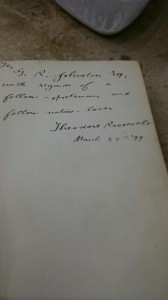 To
G. R. Johnston Esq,
with regards of a
fellow-sportsman and
fellow nature-lover
Theodore Roosevelt
March